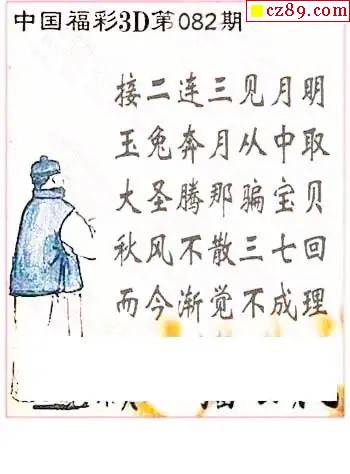 cz89.com
中国福彩3D第082期
接二连三见月明
玉兔奔月从中取
大圣腾那骗宝贝
秋风不散三七回
而今渐觉不成理